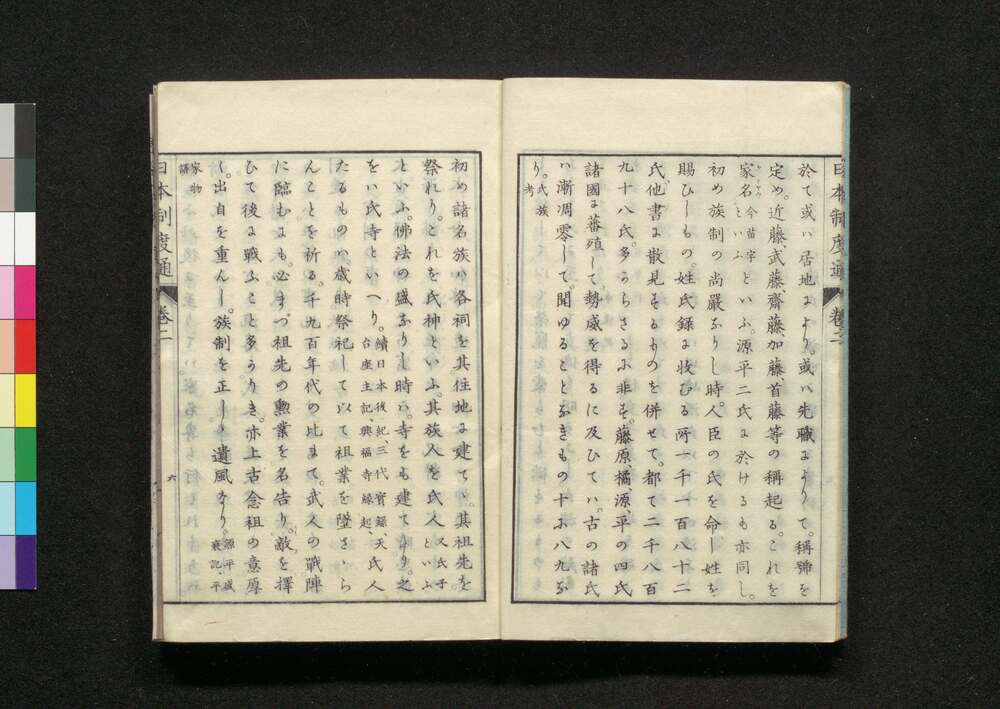 日本制度通 卷二
於て或ハ居地により。或ハ先職によりて。稱號を
定め。近藤、武藤、齋藤、加藤、首藤等の稱起る。これを
家名今苗字といふ。といふ。源平二氏に於けるも亦同し。
初め族制の尚嚴なりし時。人臣の氏を命し姓を
賜ひしもの。姓氏錄に收むる所一千一百八十二
氏、他書に散見するものを併せて。都て二千八百
九十八氏。多からさるに非す。藤原、橘、源、平の四氏
諸國に蕃殖して。勢威を得るに及ひてハ。古の諸氏
ハ漸凋零して。聞ゆることなきもの十に八九な
り。氏族考
初め諸名族ハ各祠を其住地に建て。其祖先を
祭れり。これを氏神といふ。其族人を氏人又氏子といふ
といふ。佛法の盛なりし時ハ。寺をも建てたり。之
をハ氏寺といへり。續日本後紀、三代實錄、天台座主記、興福寺緣起、氏人
たるものハ歲時祭祀して。以て祖業を墜さゝら
んことを祈る。千九百年代の比まて。武人の戰陣
に臨むにも。必まつ祖先の勲業を名告り。敵を擇
ひて後に戰ふこと多かりき。亦上古念祖の意厚
く。出自を重んし。族制を正しゝ遺風なり。源平盛衰記、平
家物語
日本制度通 卷二 六